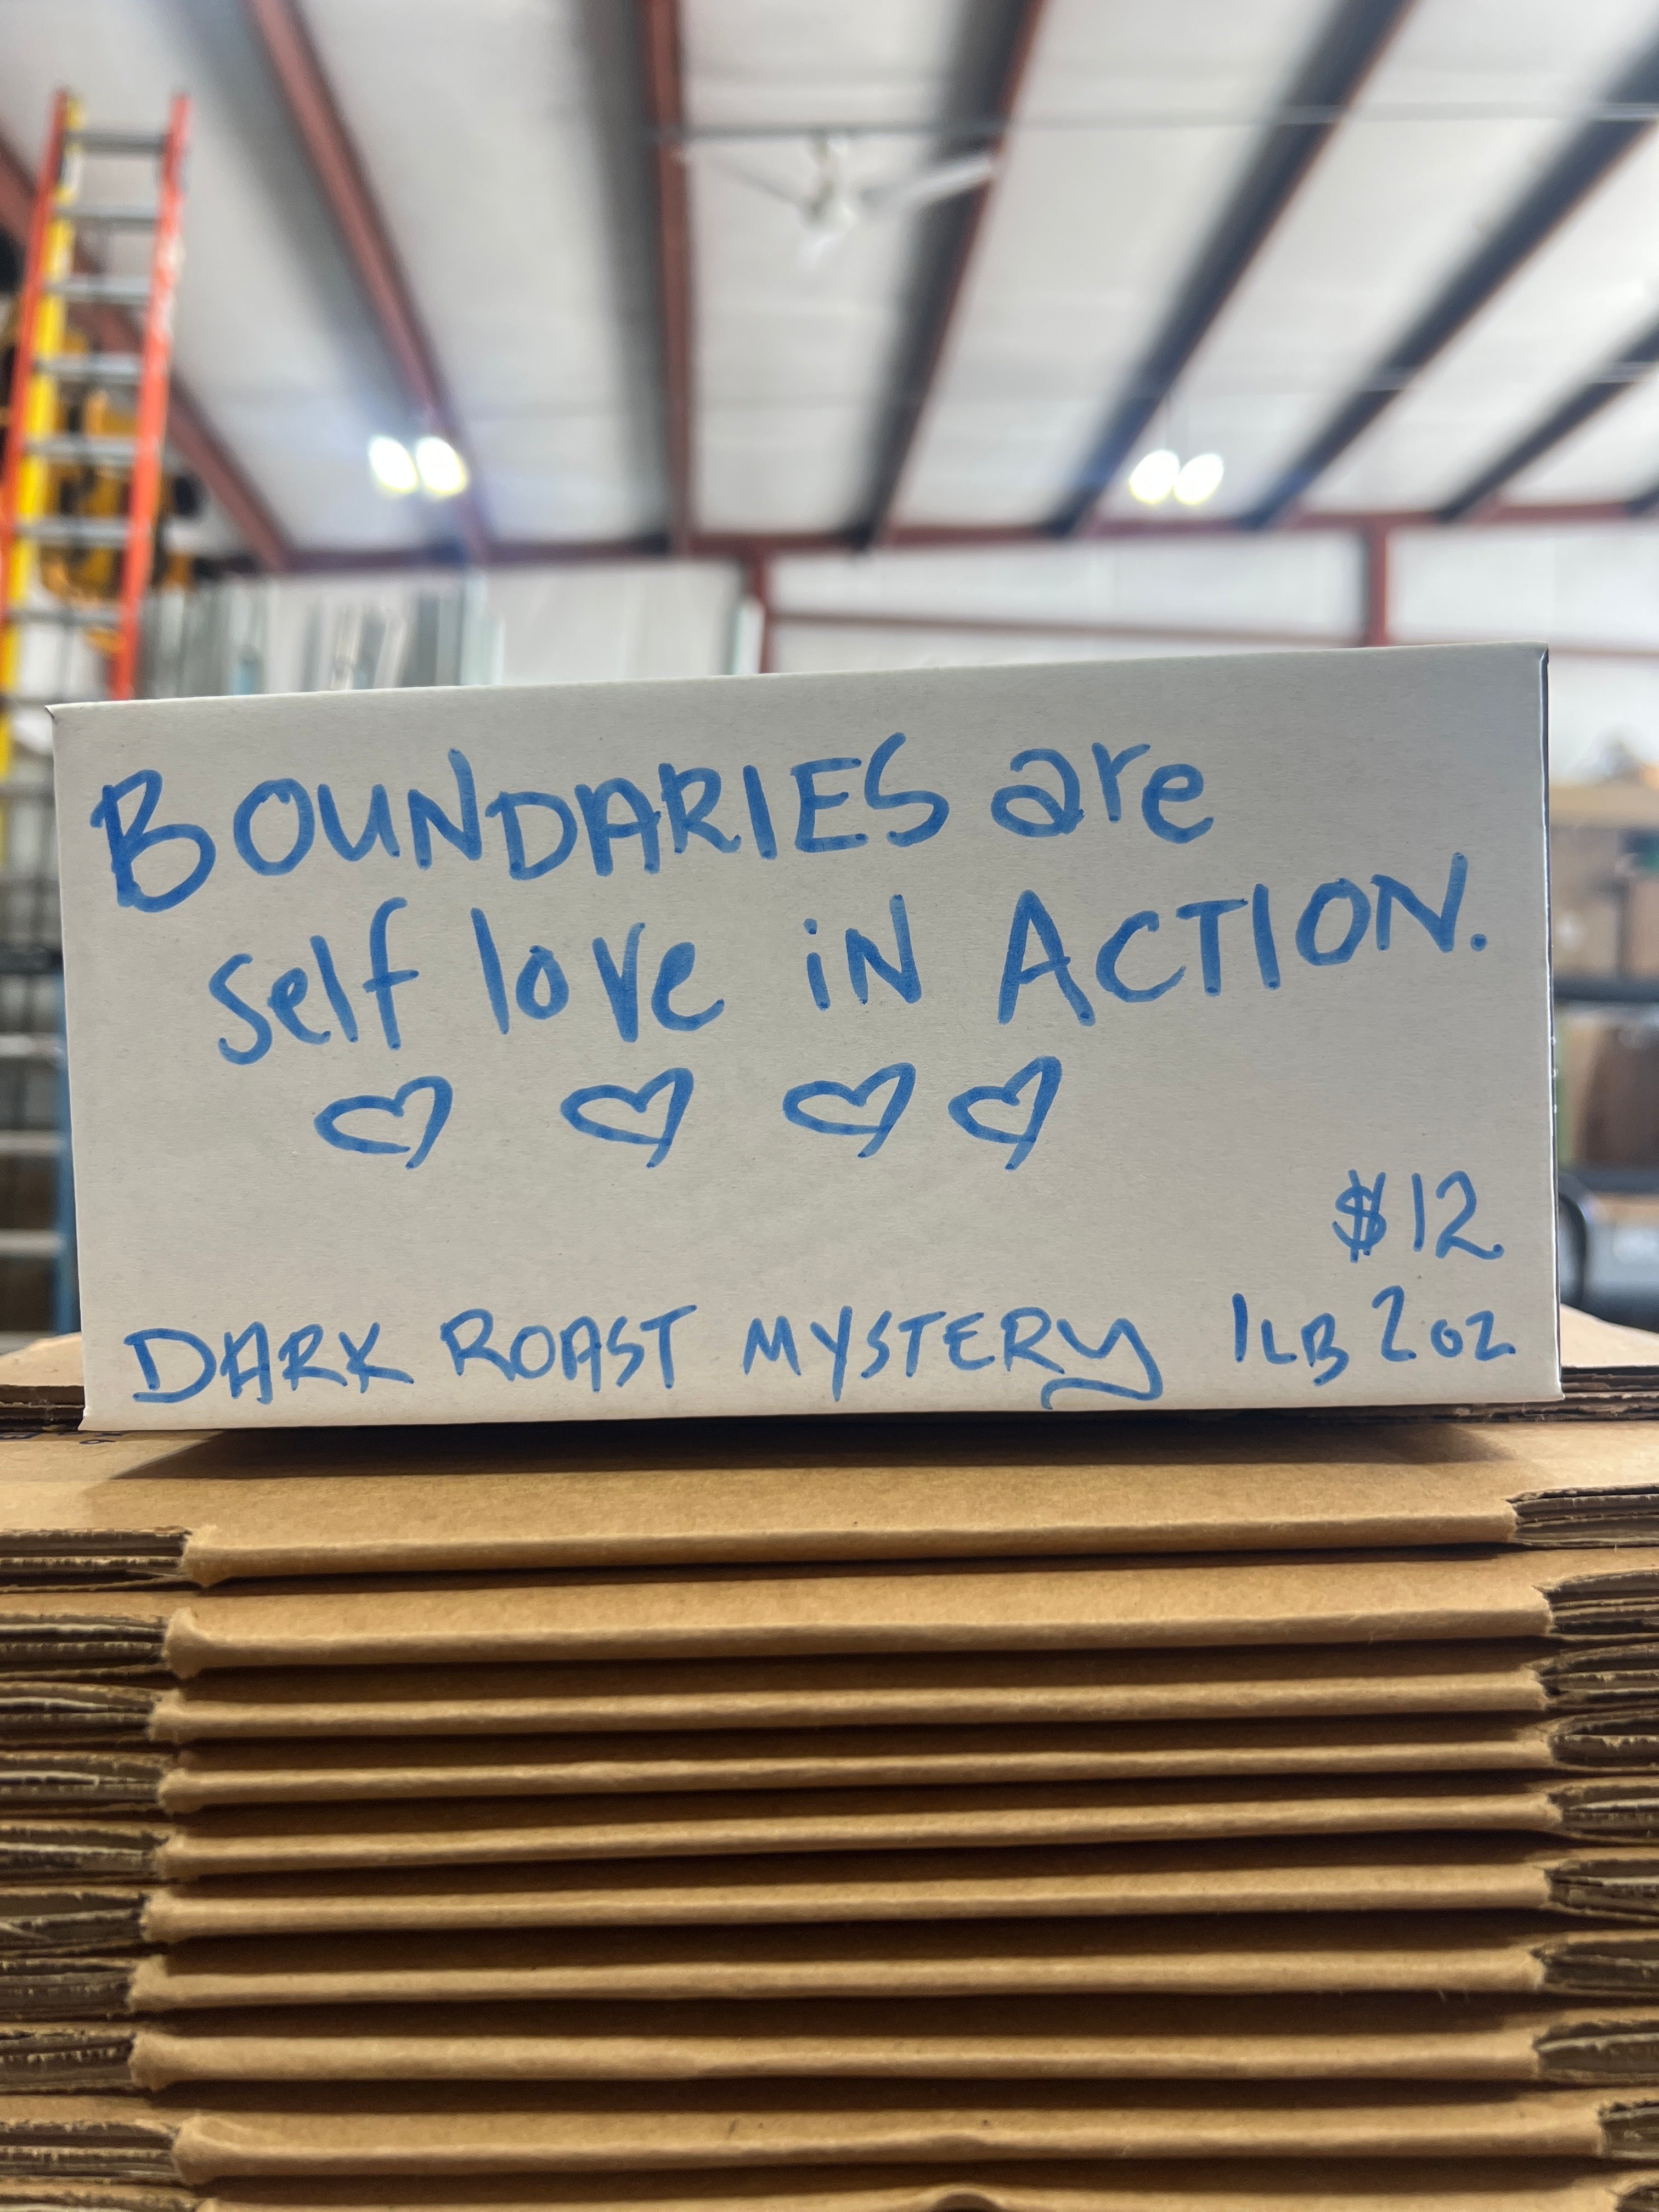 BOUNDARIES are
self love iN ACTION.
♡ ♡ ♡ ♡
$12
DARK ROAST MYSTERY 1LB 2oz